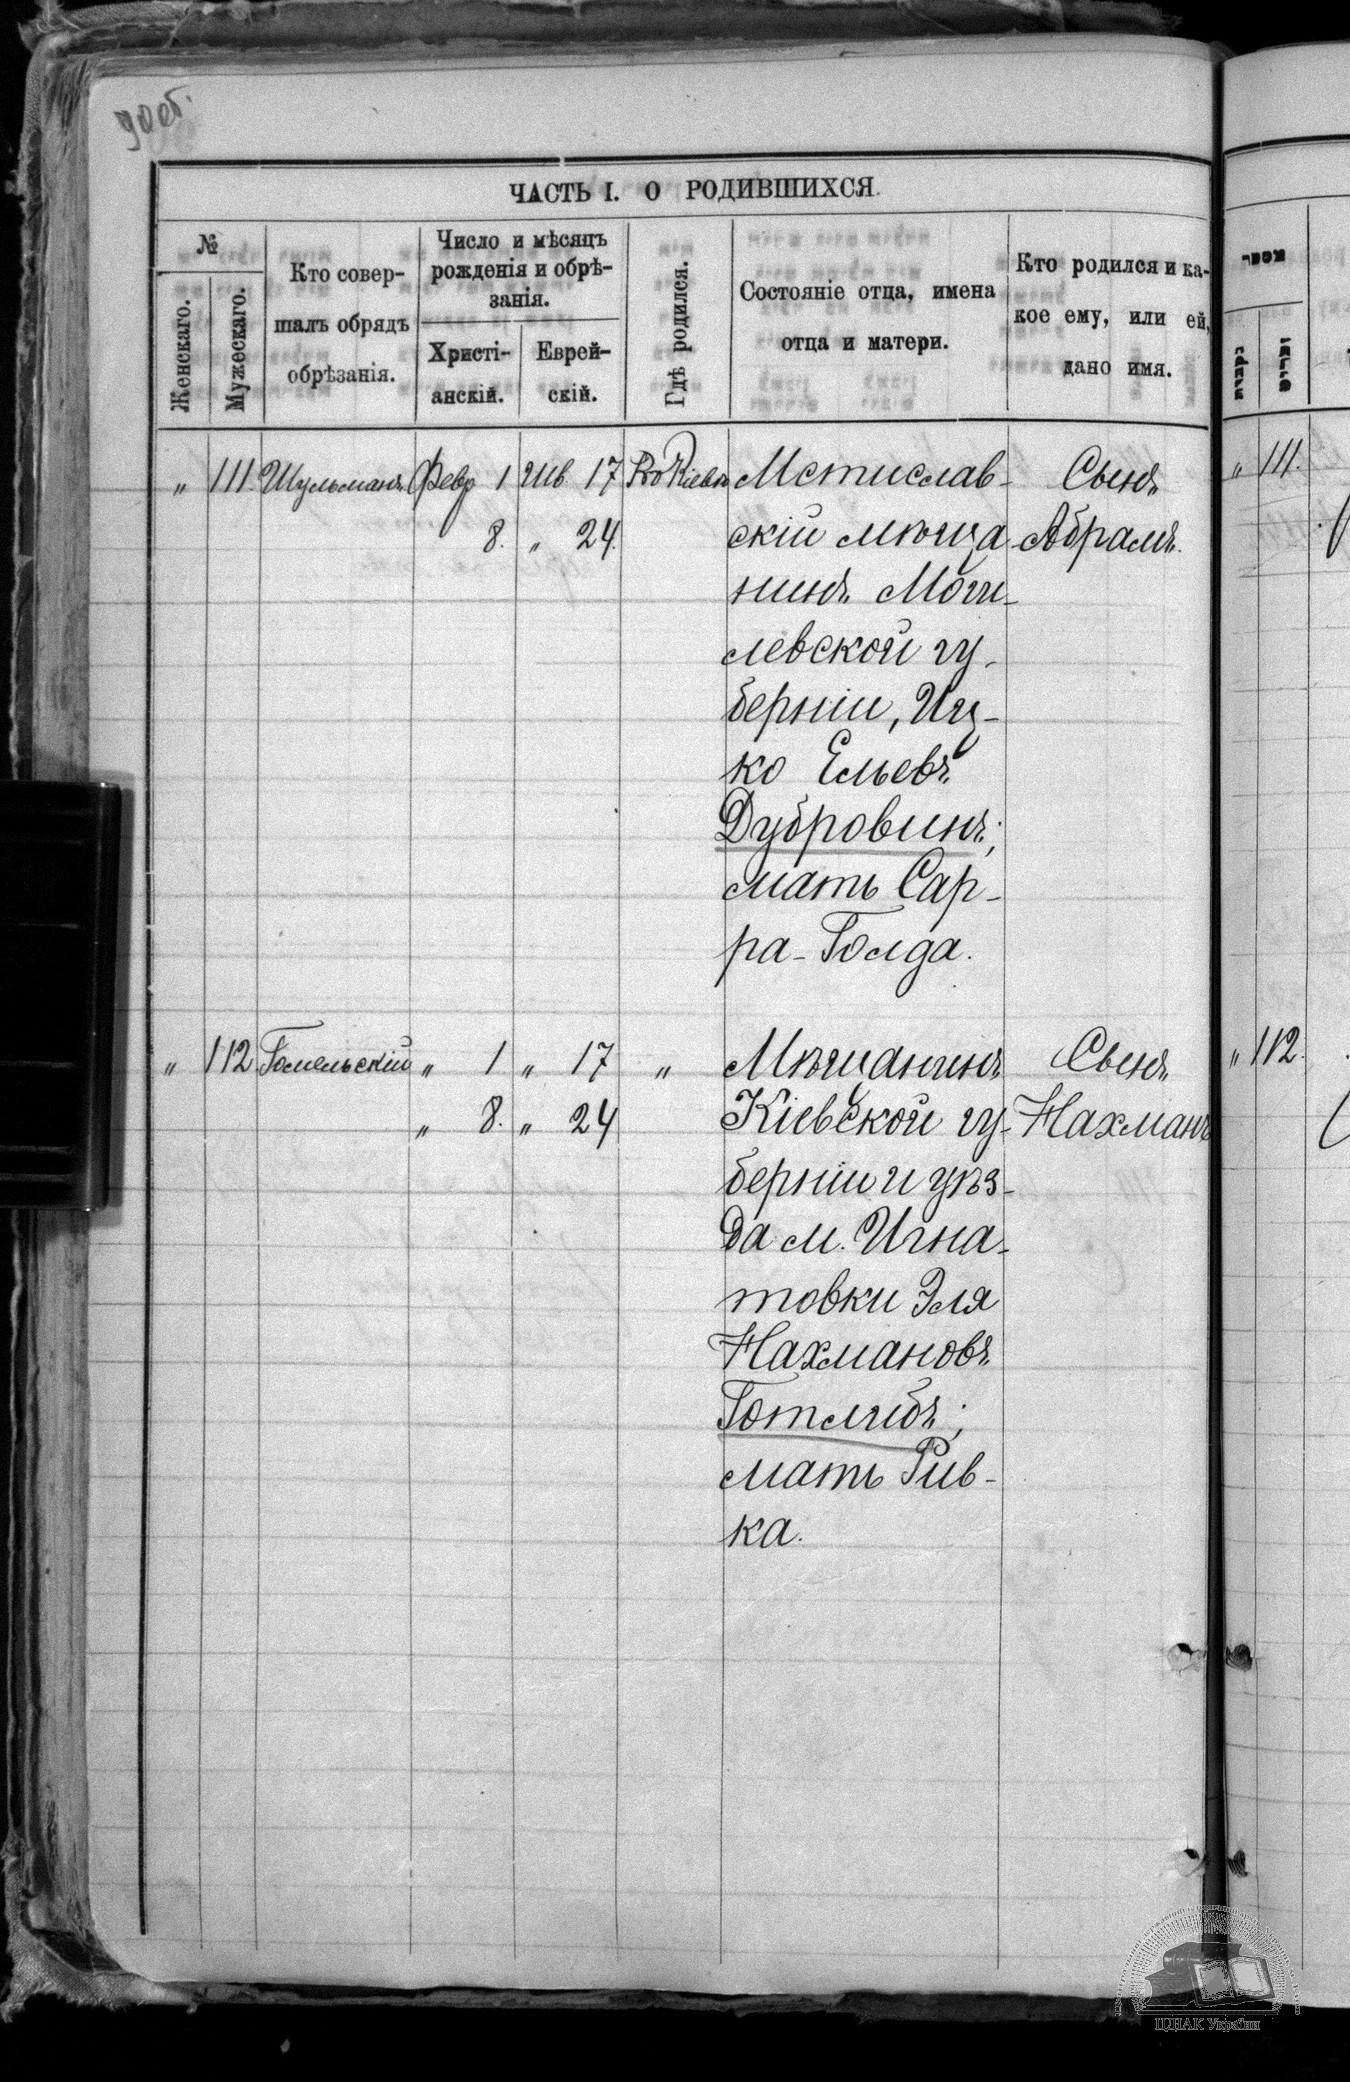 90 об.
ЧАСТЬ I. О РОДИВШИХСЯ.
№
Женскаго.
Мужескаго.
Кто совер-
шалъ обрядъ
обрѣзанія.
Число и мѣсяцъ
рожденія и обрѣ-
занія.
Христі-
анскій.
Еврей-
скій.
Гдѣ родился.
Состояніе отца, имена
отца и матери.
Кто родился и ка-
кое ему, или ей,
дано имя.
„ 111. Шульманъ Февр 1 Шв. 17 Въ Кіевѣ Мстислав- Сынъ
8. „ 24. скій мѣща Абрамъ.
нинъ Моги-
левской гу-
берніи, Иц-
ко Ельевъ
Дубровинъ;
мать Сар-
ра-Голда.
„ 112 Гомельскій „ 1 „ 17 „ Мѣщанинъ Сынъ
„ 8. „ 24 Кіевской гу- Нахманъ
берніи и уѣз-
да м. Игна-
товки Эля
Нахмановъ
Готлибъ;
мать Рив-
ка.
„ 111.
„ 112.
ЦДІАК України